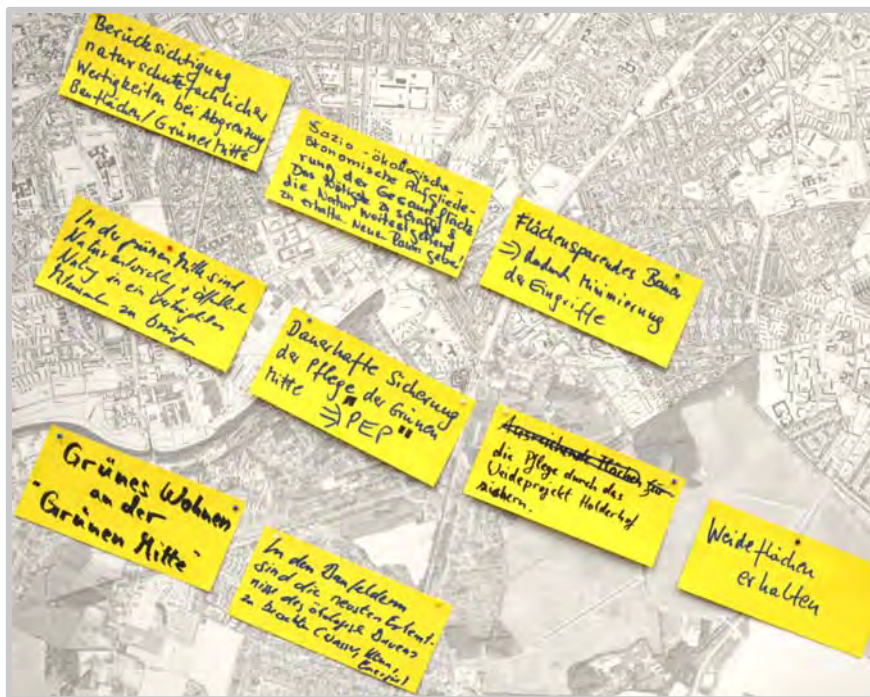 Berücksichtigung
naturschutzfachlicher
Wertigkeiten bei Abgrenzung
Bauflächen/Grüner Mitte
Sozio-ökologische-
ökonomische Aufgliede-
rung der Gesamtfläche
Das Nötigste zu schaffen &
die Natur weitestgehend
zu erhalten. Neuen Raum geben!
Flächensparendes Bauen
⇒ dadurch Minimierung
der Eingriffe
In der grünen Mitte sind
Naturentwickl. + öffentliche
Natzg in ein
Miteinander
zu bringen
Dauerhafte Sicherung
der Pflege der Grünen
Mitte ⇒ "PEP"
Ausreichende Flächen für
die Pflege durch das
Weideprojekt Holderhof
sichern.
Weideflächen
erhalten
Grünes Wohnen
an der
"Grünen Mitte"
In den Baufeldern
sind die neusten Erkennt-
nisse des ökologisch. Bauens
zu beachten (Wasser, Klima,
Energie)